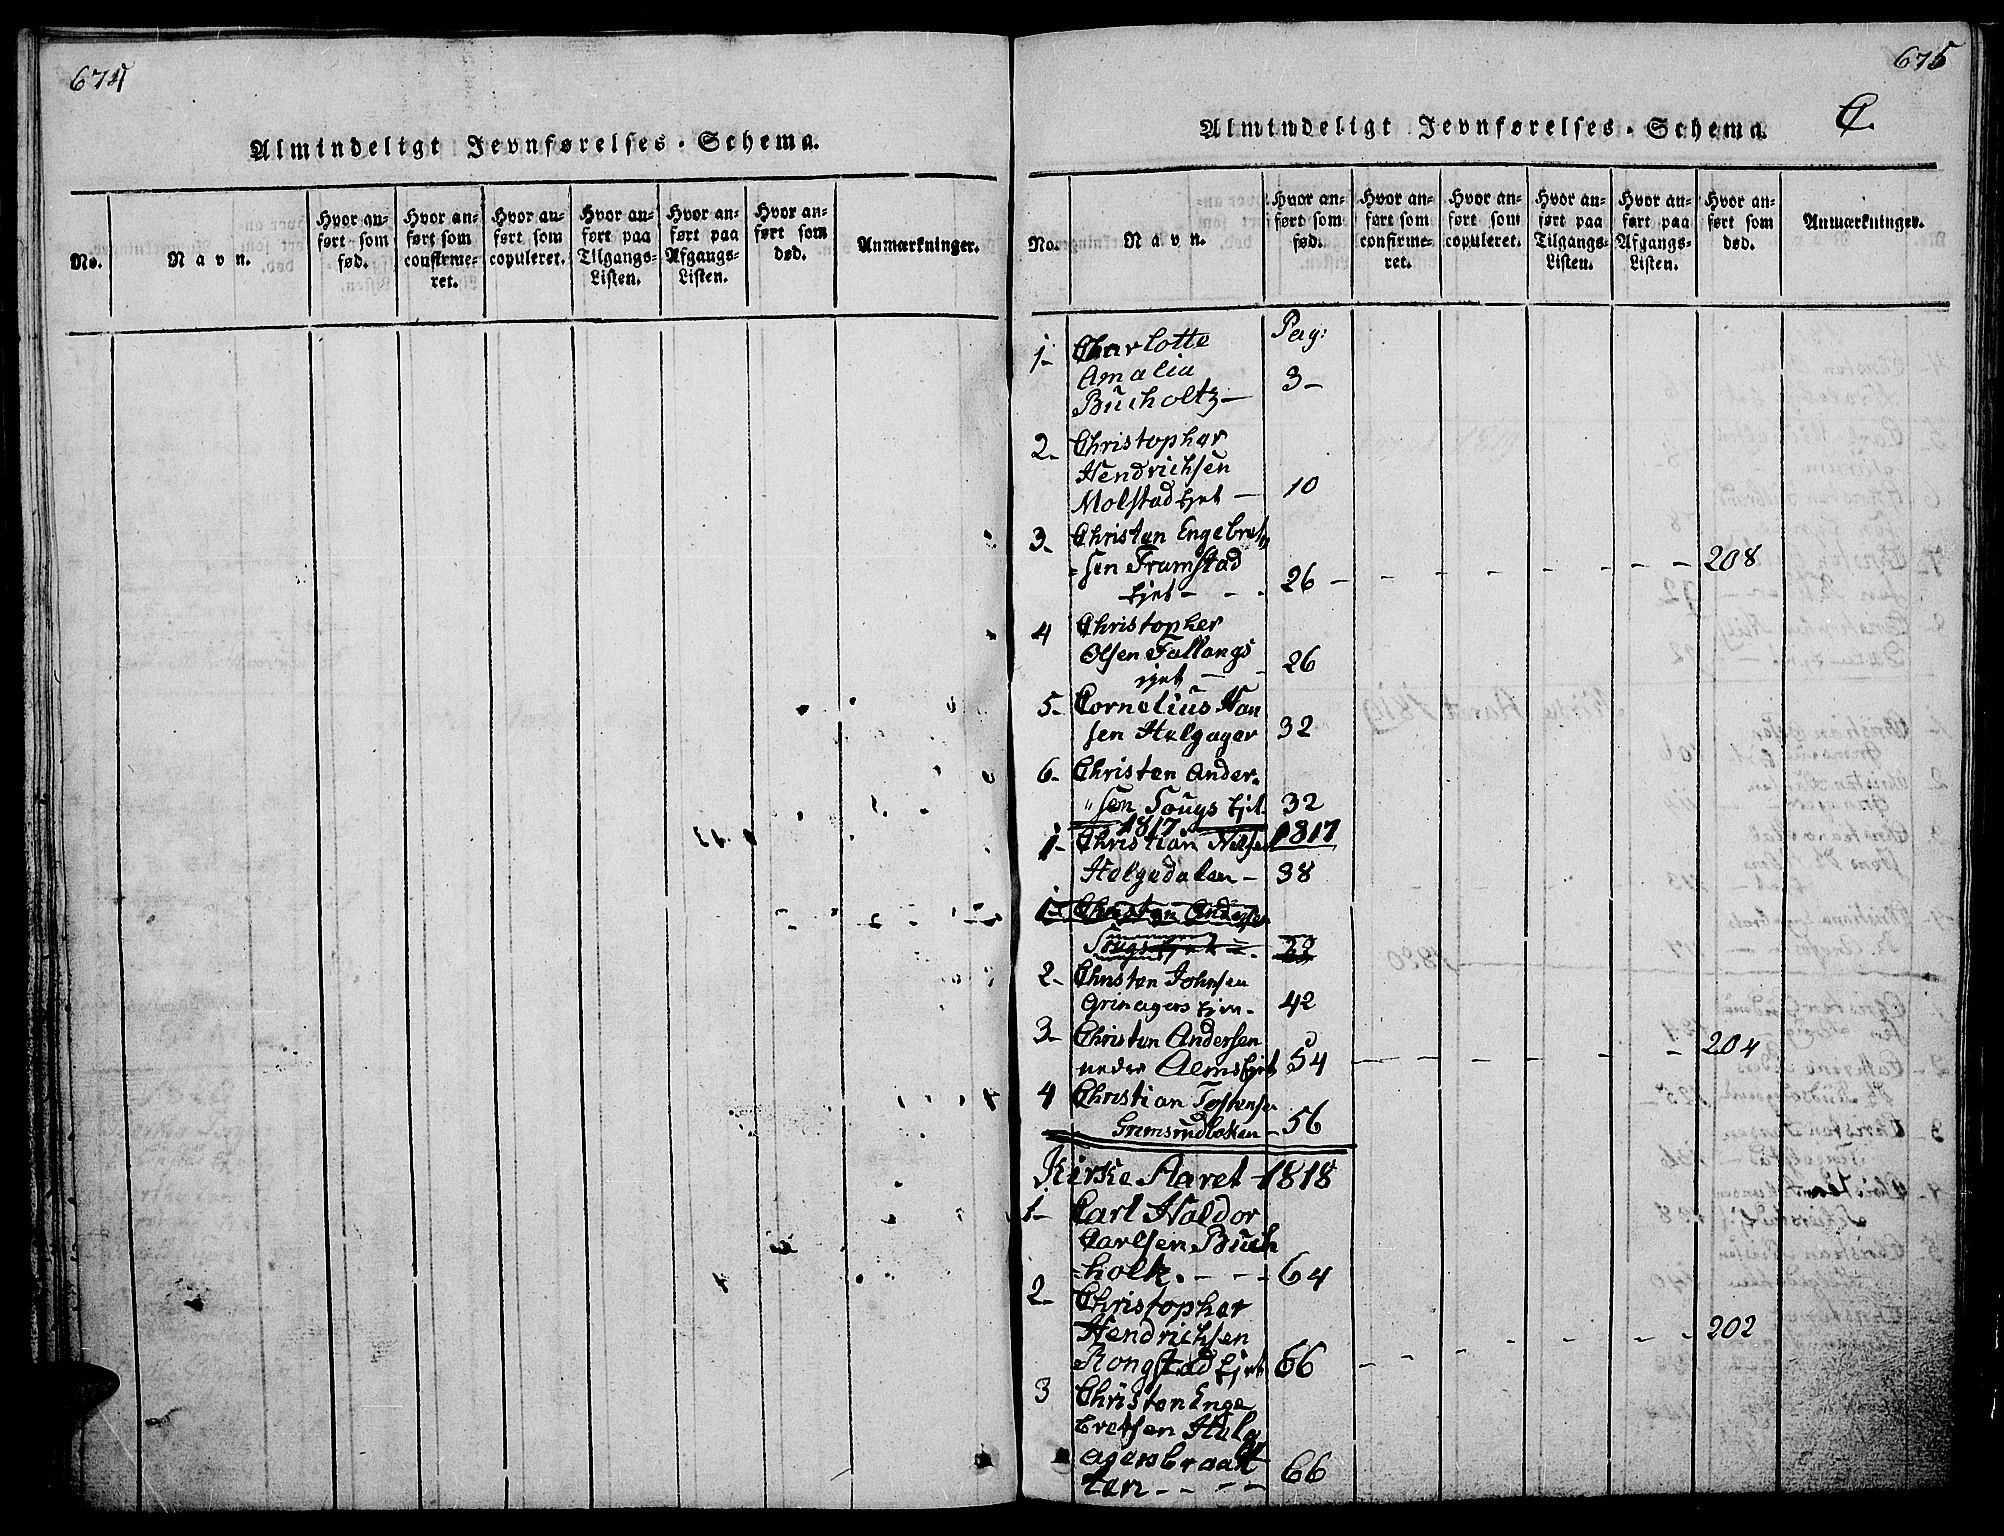 674
Almindeligt Jevnførelses-Schema.
No.
Navn.
Hvor an-
ført som
fød.
Hvor an-
ført som
confirme-
ret.
Hvor an-
ført som
copuleret.
Hvor an-
ført paa
Tilgangs-
Listen.
Hvor an-
ført paa
Afgangs-
Listen.
Hvor an-
ført som
død.
Anmærkninger.
675
Almindeligt Jevnførelses-Schema.
C.
No.
Navn.
Hvor an-
ført som
fød.
Hvor an-
ført som
confirme-
ret.
Hvor an-
ført som
copuleret.
Hvor an-
ført paa
Tilgangs-
Listen.
Hvor an-
ført paa
Afgangs-
Listen.
Hvor an-
ført som
død.
Anmærkninger.
Pag:
1- Charlotte
Amalia
Bucholtz - 3-
2- Christopher
Hendrichsen
Molstadejet - 10
3- Christen Engebret
=sen Framstad 208
ejet - - - 26 -
4 Christopher
Olsen Fallangs
ejet - - 26
5- Cornelius Han
sen Helgager 32
6- Christen Ander
"sen Sougs Ejet 32
1817
1- Christian Nilsen 1817
Helgedalen - 38
1- Christen Andersen
Sougs
2- Christen Johnsen
Grinagers Ejen- 42
3- Christen Andersen 204
nedre Alms Ejet 54
4 Christian Tostensen
Grimsrudbaken - 56
Kirke Aaret 1818
1- Carl Haldor
Carlsen Buch
=holt. - - - 64
2- Christopher
Hendrichsen 202
Rongstad Ejet 66
3 Christen Enge
bretsen Helg
agersbraat
ten - - - - 66